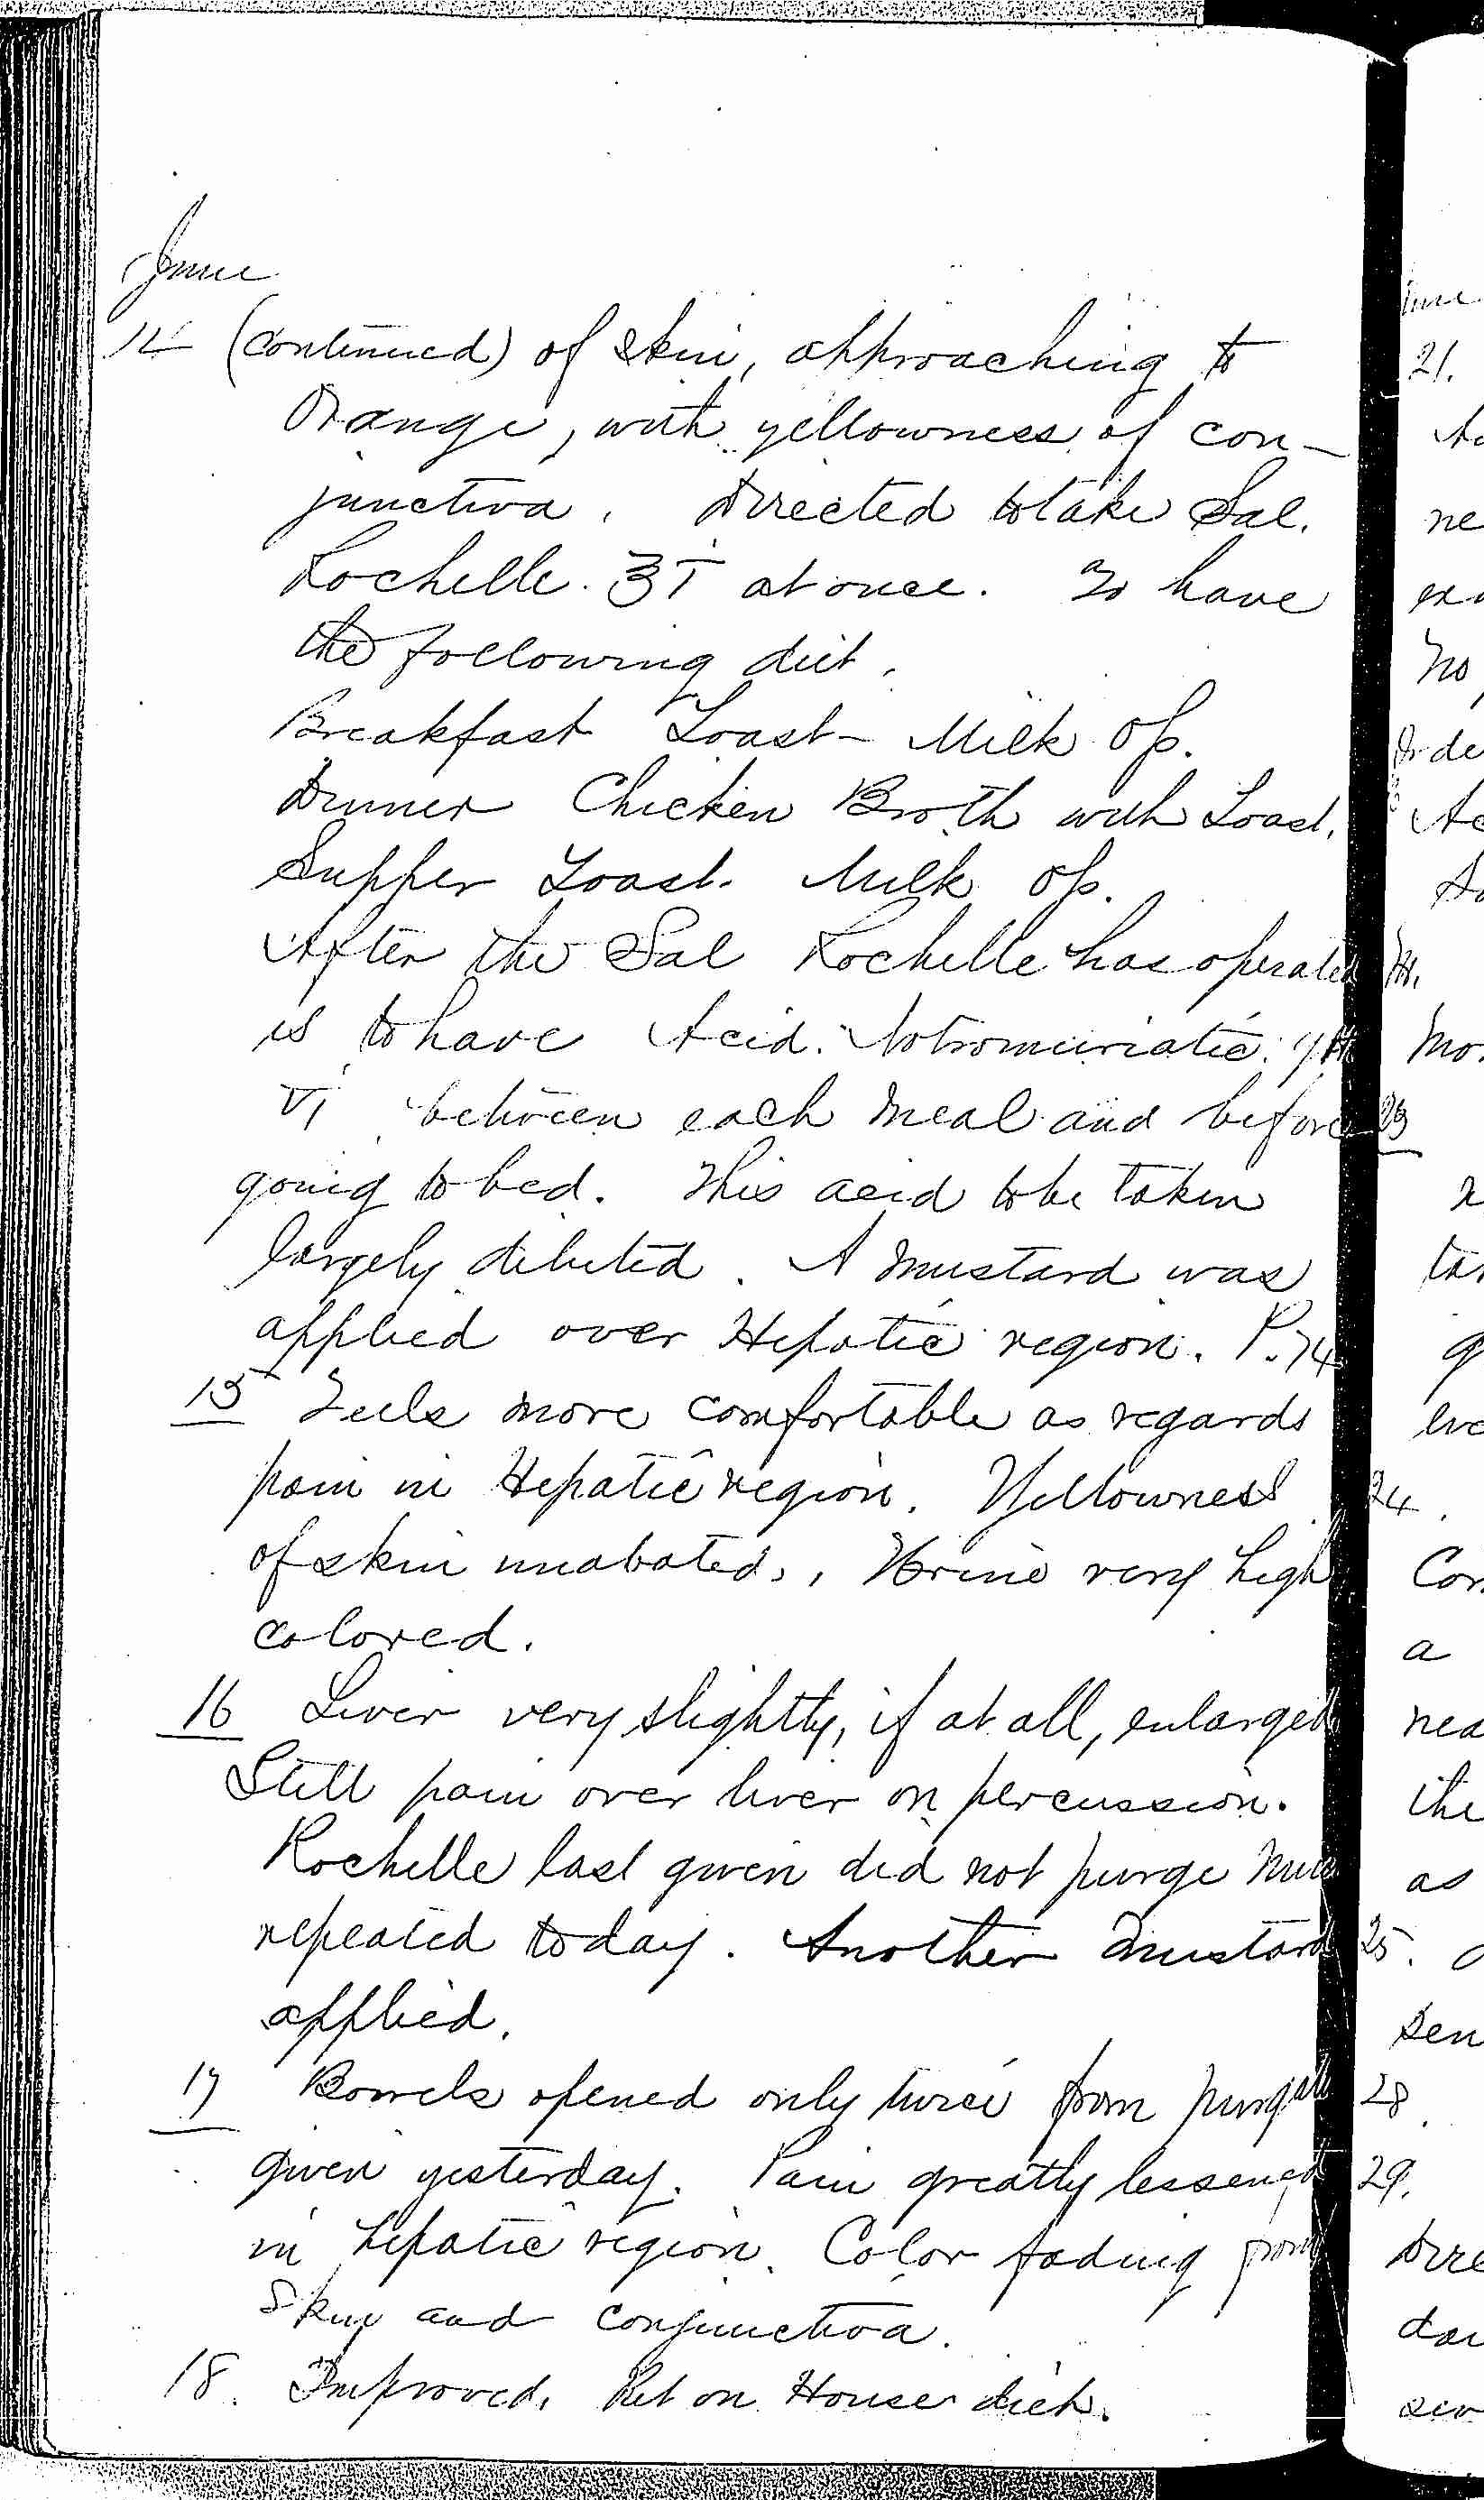 June
14 (continued) of skin, approaching to
Orange, with yellowness of con-
junctiva. Directed to take Sal.
Rochelle. ℥ī at once. To have
the following diet.
Breakfast Toast - Milk Oss.
Dinner Chicken Broth with Toast.
Supper Toast. Milk Oss.
After the Sal Rochelle has operated
is to have Acid. Nitromuriatic.
vi between each meal and before
going to bed. This acid to be taken
largely diluted. A mustard was
applied over Hepatic region. P. 74
15 Feels more comfortable as regards
pain in Hepatic region. Yellowness
of skin unabated. Urine very high
colored.
16 Liver very slightly, if at all, enlarged
Still pain over liver on percussion.
Rochelle last given did not purge much
repeated today. Another mustard
applied.
17 Bowels opened only twice from purgative
given yesterday. Pain greatly lessened
in hepatic region. Color fading from
Skin and conjunctiva.
18. Improved. Put on House diet.
21.
23
24.
25.
28.
29.